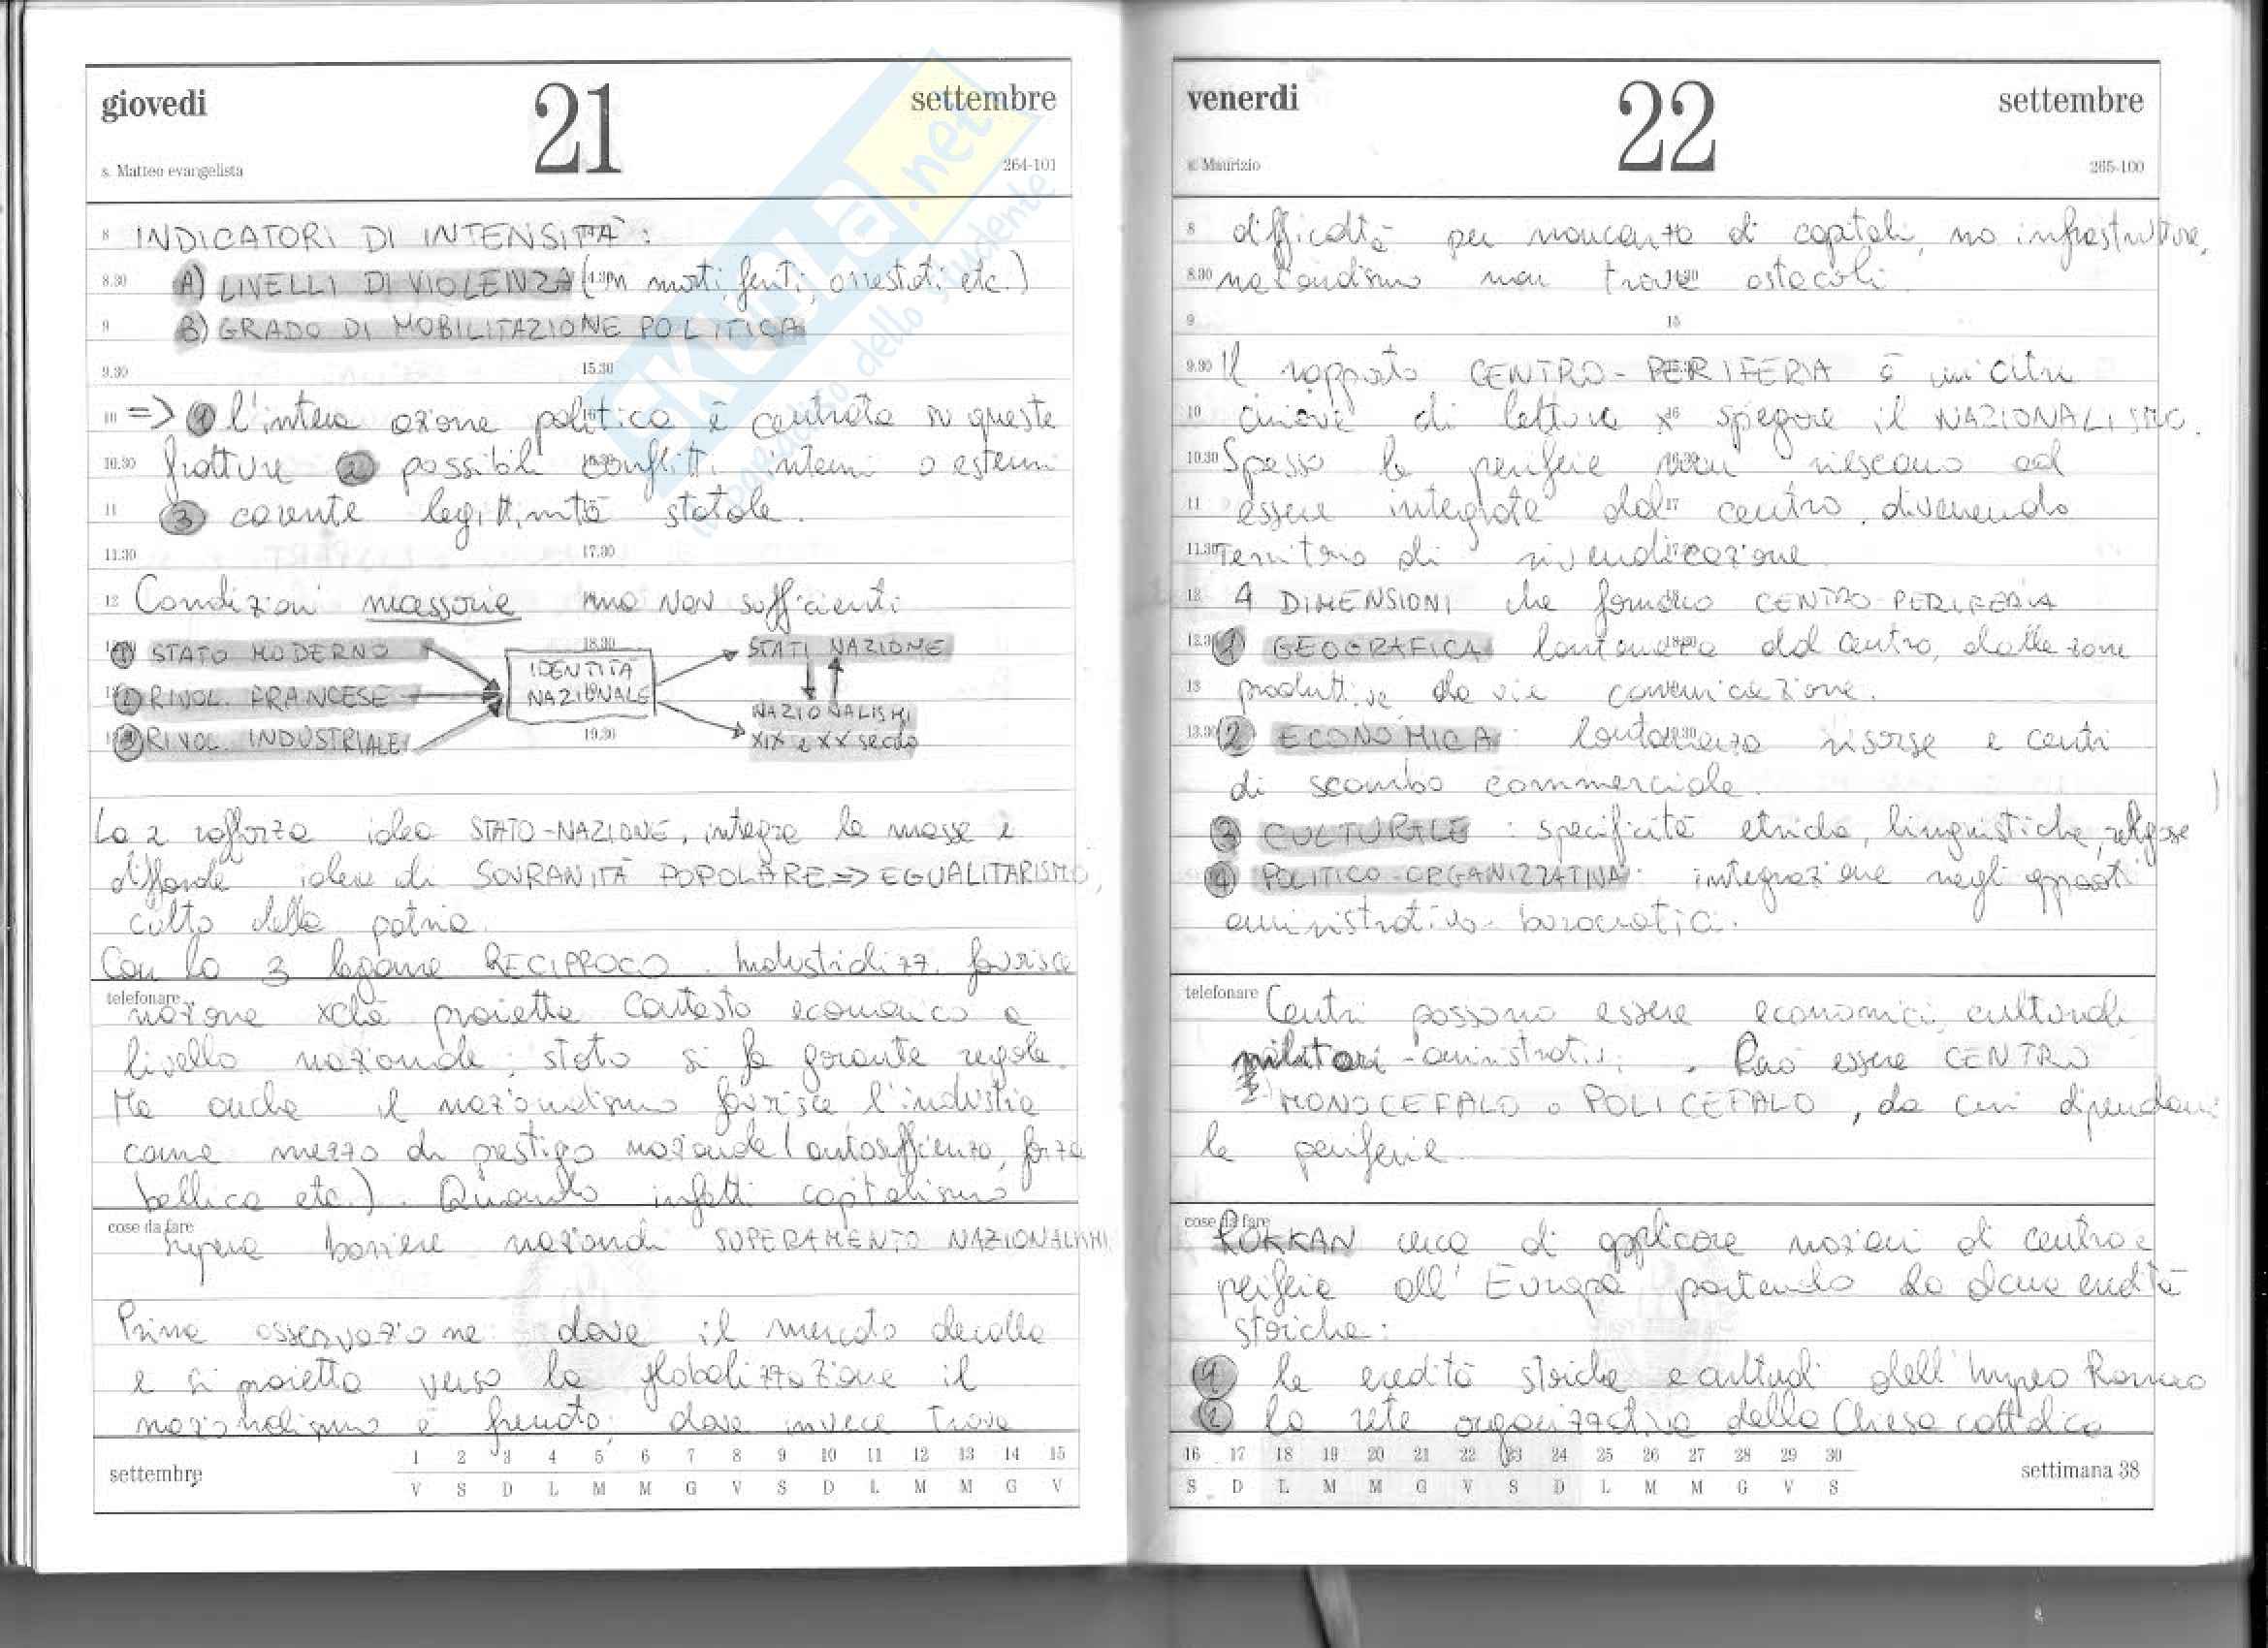 giovedì 21 settembre
s. Matteo evangelista 264-101
8 INDICATORI DI INTENSITÀ:
8.30 A) LIVELLI DI VIOLENZA (n morti, feriti, arrestati etc.)
9 B) GRADO DI MOBILITAZIONE POLITICA
9.30 15.30
10 => 1 l'intera azione politica è centrata su queste
10.30 fratture 2 possibili conflitti interni o esterni
11 3 carente legittimità statale.
11.30 17.30
12 Condizioni necessarie ma NON sufficienti
18.30
1 STATO MODERNO
2 RIVOL. FRANCESE
3 RIVOL. INDUSTRIALE
IDENTITÀ
NAZIONALE
19.30
STATI NAZIONE
NAZIONALISMI
XIX e XX secolo
La 2 rafforza idea STATO-NAZIONE, integra le masse e
diffonde idee di SOVRANITÀ POPOLARE => EGUALITARISMO,
culto della patria.
Con la 3 legame RECIPROCO. Industrializz. favorisce
telefonare
nazione xchè proietta contesto economico a
livello nazionale; stato si fa garante regole.
Ma anche il nazionalismo favorisce l'industria
come mezzo di prestigio nazionale (autosufficienza, forza
bellica etc.). Quando infatti capitalismo
cose da fare
supera barriere nazionali SUPERAMENTO NAZIONALISMI
Prima osservazione: dove il mercato decolla
e si proietta verso la globalizzazione il
nazionalismo è frenato; dove invece trova
settembre 1 2 3 4 5 6 7 8 9 10 11 12 13 14 15
V S D L M M G V S D L M M G V
venerdì 22 settembre
s. Maurizio 265-100
8 difficoltà per mancanza di capitali, no infrastrutture,
8.30 nazionalismo non trova ostacoli.
9 15
9.30 Il rapporto CENTRO-PERIFERIA è un'altra
10 chiave di lettura x spiegare il NAZIONALISMO.
10.30 Spesso le periferie non riescono ad
11 essere integrate dal centro, divenendo
11.30 territorio di rivendicazione
12 4 DIMENSIONI che formano CENTRO-PERIFERIA
12.30 1 GEOGRAFICA lontananza dal centro, dalle zone
13 produttive da vie comunicazione.
13.30 2 ECONOMICA: lontananza risorse e centri
di scambio commerciale.
3 CULTURALE: specificità etniche, linguistiche, religiose
4 POLITICO-ORGANIZZATIVA: integrazione negli apparati
aministrativo-burocratici.
telefonare
Centri possono essere economici, culturali
militari-aministrativi. Può essere CENTRO
MONOCEFALO o POLICEFALO, da cui dipendono
le periferie.
cose da fare
ROKKAN cerca di applicare nozioni di centro e
periferie all'Europa partendo da alcune eredità
storiche:
1 le eredità storiche e culturali dell'Impero Romano
2 la rete organizzativa della Chiesa cattolica
16 17 18 19 20 21 22 23 24 25 26 27 28 29 30 settimana 38
S D L M M G V S D L M M G V S
skuola.net
il paradiso dello studente